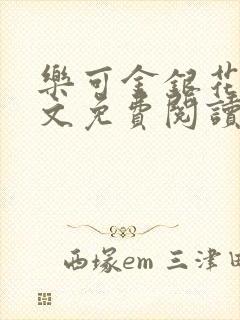 樂可金銀花
文免費閱讀
西塚em 三津田